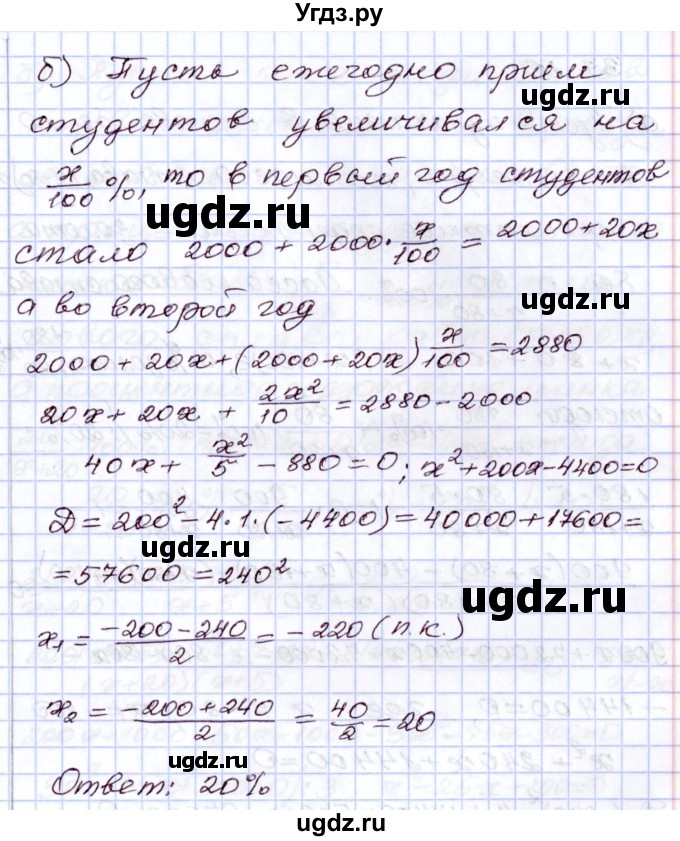 Угдз.ру
б) Пусть ежегодно приём
ugdz.ru
студентов увеличивался на
x/100 %, то в первый год студентов
ugdz.ru
стало 2000 + 2000 · x/100 = 2000 + 20x
а во второй год
ugdz.ru
2000 + 20x + (2000 + 20x) x/100 = 2880
20x + 20x + 2x²/10 = 2880 - 2000
40x + x²/5 - 880 = 0; x² + 200x - 4400 = 0
Д = 200² - 4·1·(-4400) = 40000 + 17600 =
ugdz.ru
= 57600 = 240²
ugdz.ru
x₁ = (-200 - 240)/2 = -220 (п.к.)
x₂ = (-200 + 240)/2 = 40/2 = 20
ugdz.ru
Ответ: 20%
ugdz.ru